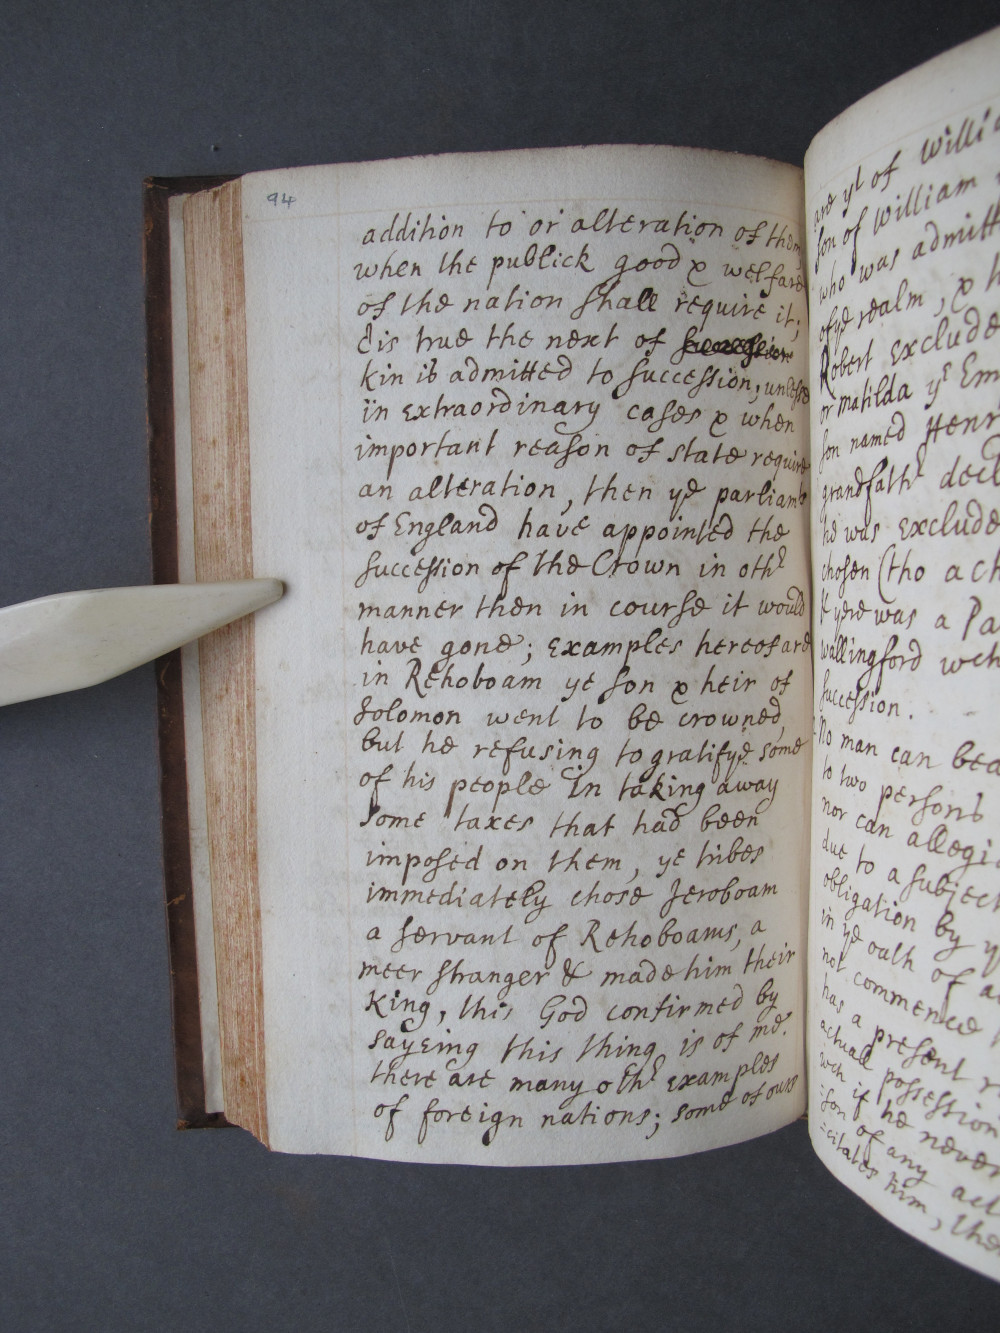 94
addition to or alteration of them
when the publick good & welfare
of the nation shall require it;
'tis true the next of succession
kin is admitted to succession, unlesse
in extraordinary cases & when
important reason of state require
an alteration, then ye parliamts
of England have appointed the
succession of the Crown in othr
manner then in course it would
have gone; examples hereof are
in Rehoboam ye son & heir of
Solomon went to be crowned
but he refusing to gratifye some
of his people in taking away
some taxes that had been
imposed on them, ye tribes
immediately chose Jeroboam
a servant of Rehoboams, a
meer stranger & made him their
King, this God confirmed by
sayeing this thing is of me.
there are many othr examples
of foreign nations; some of ours
are yt of Willi
son of William
who was admitt
of ye realm, &
Robert exclude
or matilda ye Em
son named Henr
grandfathr decl
he was exclude
chosen (tho a ch
& yere was a Pa
wallingford wch
succession.
No man can bea
to two persons
nor can allegia
due to a subject
obligation by y
in ye oath of a
not commence
has a present r
actuall possession
wch if he never
son of any act
=citates him, the